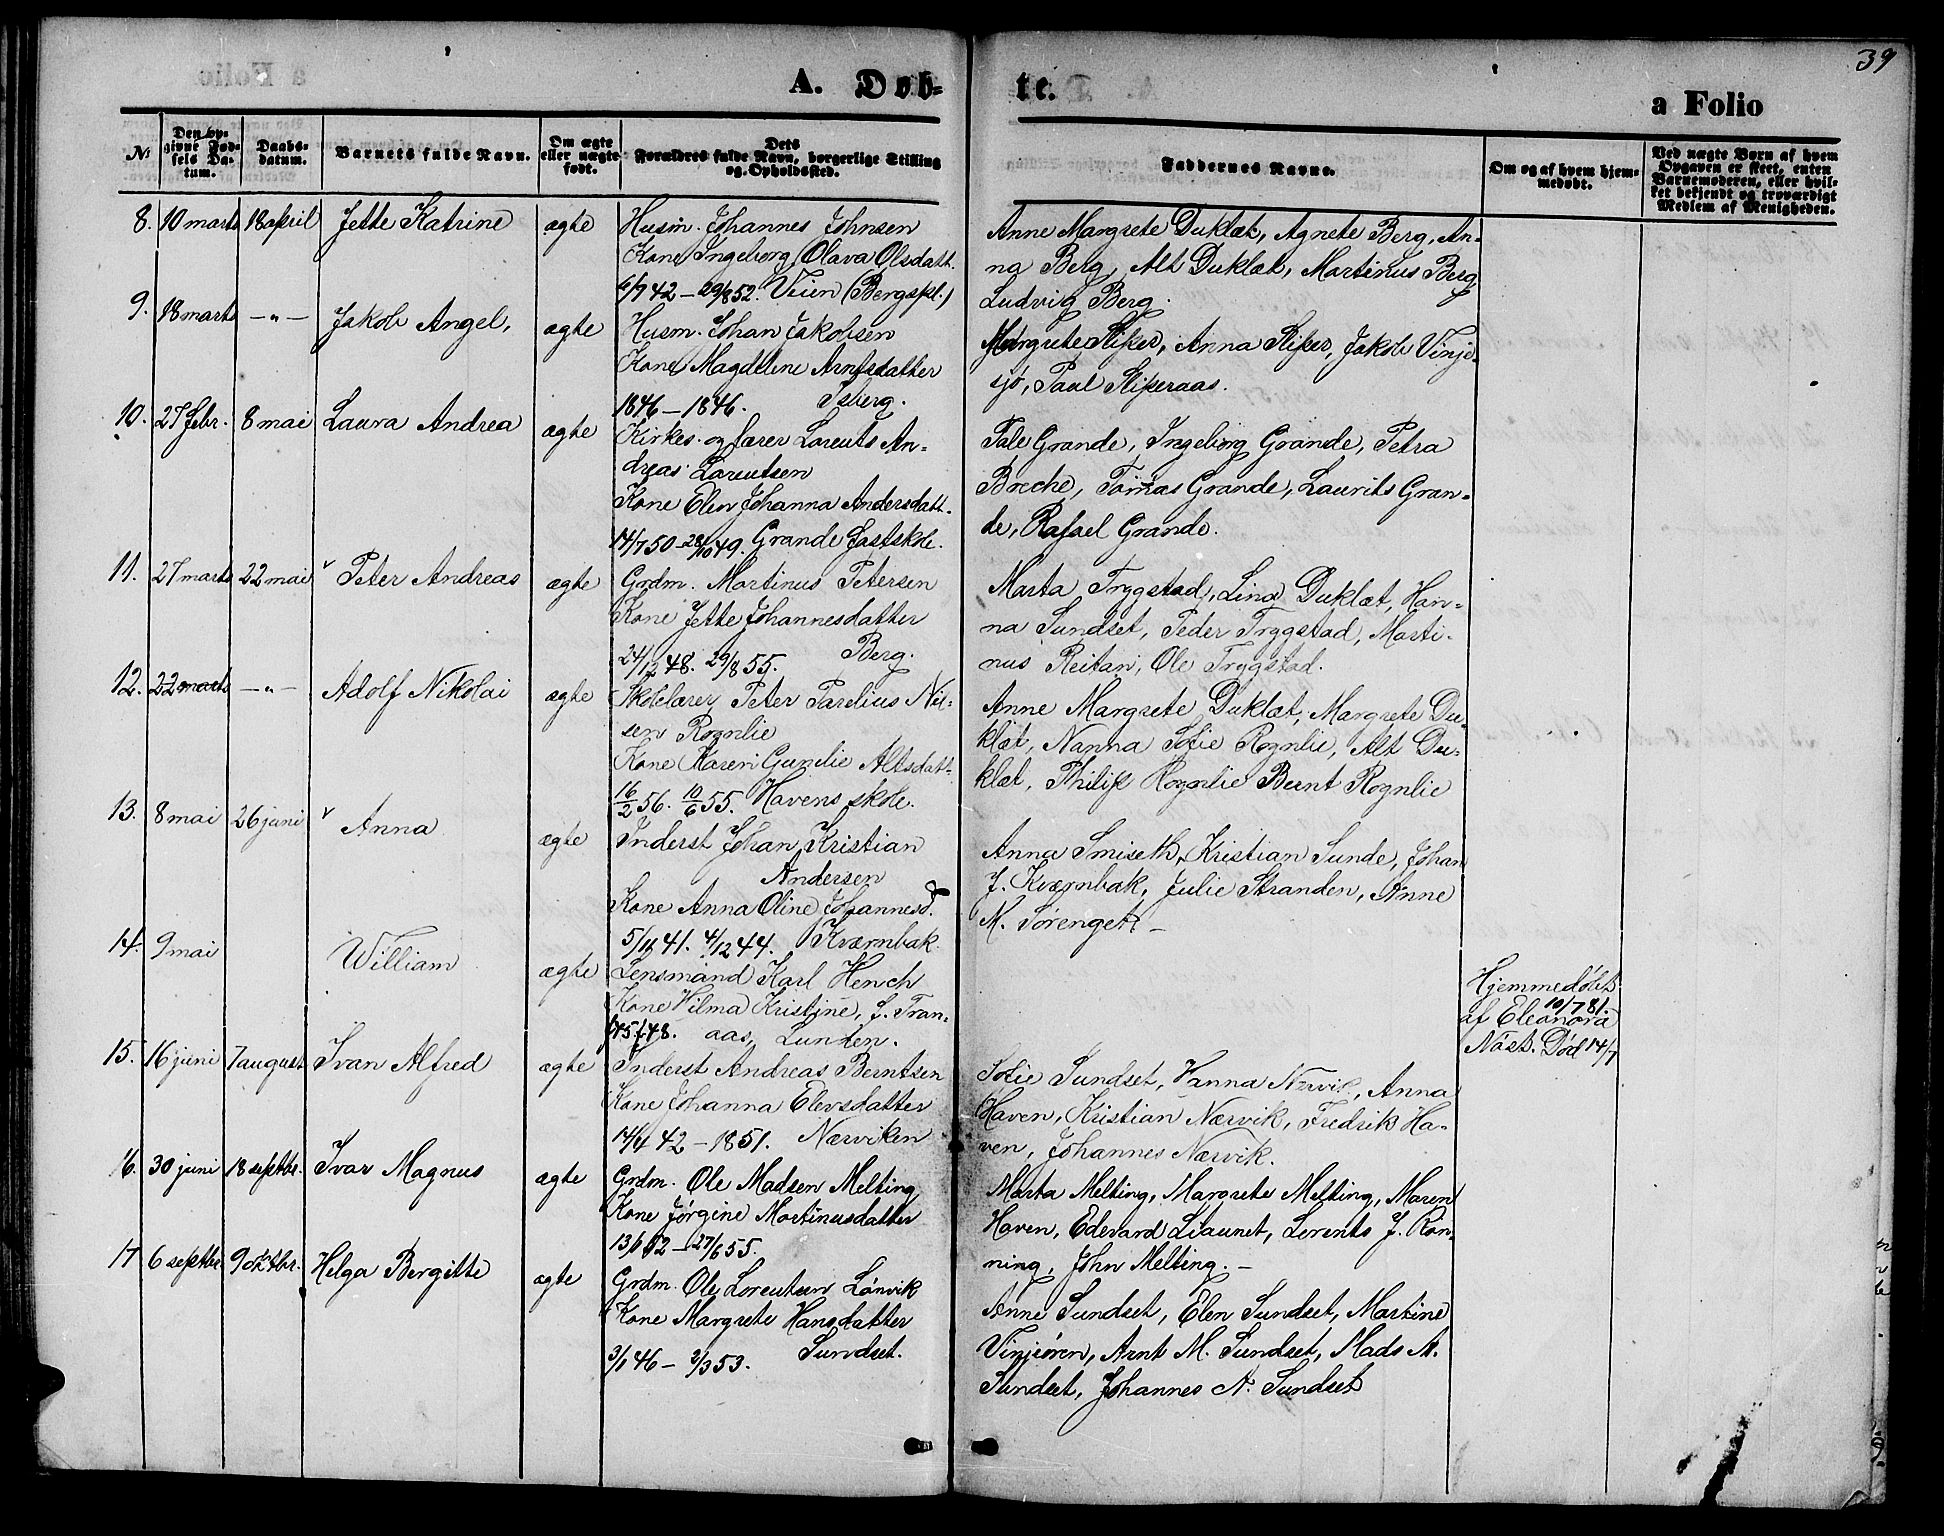 39
A. Døb-
te.
a Folio
No
Den opgivne Fødsels Datum.
Daabsdatum.
Barnets fulde Navn.
Om ægte eller uægte født.
Dets Forældres fulde Navn, borgerlige Stilling og Opholdssted.
Faddernes Navne.
Om og af hvem hjemmedøbt.
Ved uægte Børn af hvem Opgaven er skeet, enten Barnemoderen, eller hvilket bekjendt og troværdigt Medlem af Menigheden.
8. 10 marts 18 april Jette Katrine ægte
Husm. Johannes Johnsen
Kone Ingeborg Olava Olsdatt.
6/7 42 – 29/8 52. Veien (Bergspl.)
Anne Margrete Duklæt, Agnete Berg, An-
na Berg, Alt Duklæt, Martinus Berg,
Ludvig Berg.
9. 18 marts –„– Jakob Angel, ægte
Husm. Johan Jakobsen
Kone Magdelene Arntsdatter
1846 – 1846. Isberg.
Margrete Sliper, Anna Sliper, Jakob Vinje-
sjø, Paul Sliperaas.
10. 27 febr. 8 mai Laura Andrea ægte
Kirkes. og lærer Lorents An-
dreas Lorentsen
Kone Elen Johanna Andersdatt.
14/7 50 – 28/10 49. Grande Fastskole.
Tale Grande, Ingeborg Grande, Petra
Breche, Tomas Grande, Laurits Gran-
de, Rafael Grande.
11. 27 marts 22 mai Peter Andreas ægte
Grdm. Martinus Petersen
Kone Jette Johannesdatter
24/12 48. 29/8 55. Berg.
Marta Trygstad, Lina Duklæt, Han-
na Sundset, Peder Trygstad, Marti-
nus Reitan, Ole Trygstad.
12. 22 marts –„– Adolf Nikolai ægte
Skolelærer Peter Parelius Niel-
sen Rognlie
Kone Karen Gunilie Altsdatt.
16/2 56. 10/6 55. Havens skole.
Anne Margrete Duklæt, Margrete Du-
klæt, Nanna Sofie Rognlie, Alt Du-
klæt, Philip Rognlie Bernt Rognlie
13. 8 mai 26 juni Anna ægte
Inderst Johan Kristian
Andersen
Kone Anna Oline Johannesd.
5/11 41. 4/12 44. Kværnbak.
Anna Smiseth, Kristian Sunde, Johan
J. Kværnbak, Julie Stranden, Anne
M. Sørenget –
14. 9 mai William ægte
Lensmand Karl Hench
Kone Vilma Kristine, f. Tran-
aas, Lunden.
Hjemmedøbt
10/7 81.
af Eleonora
Næsb. Død 14/7
15. 16 juni 7 august Ivan Alfred ægte
Inderst Andreas Berntsen
Kone Johanna Elevsdatter
14/4 42 – 1851. Nærviken
Sofie Sundset, Hanna Nærvik, Anna
Haven, Kristian Nærvik, Fredrik Ha-
ven, Johannes Nærvik.
16. 30 juni 18 septbr. Ivar Magnus ægte
Grdm. Ole Madsen Melting
Kone Jørgine Martinusdatter
27/6 55.
Marta Melting, Margrete Melting, Maren
Haven, Edevard Liaunet, Lorents J. Røn-
ning, John Melting. –
17 6 septbr. 9 oktbr. Helga Bergitte ægte
Grdm. Ole Lorentsen Lønvik
Kone Margrete Hansdatter
3/1 46 – 2/3 53. Sundset.
Anne Sundset, Elen Sundset, Martine
Vinjeøren, Arnt M. Sundset, Mads A.
Sundset, Johannes A. Sundset